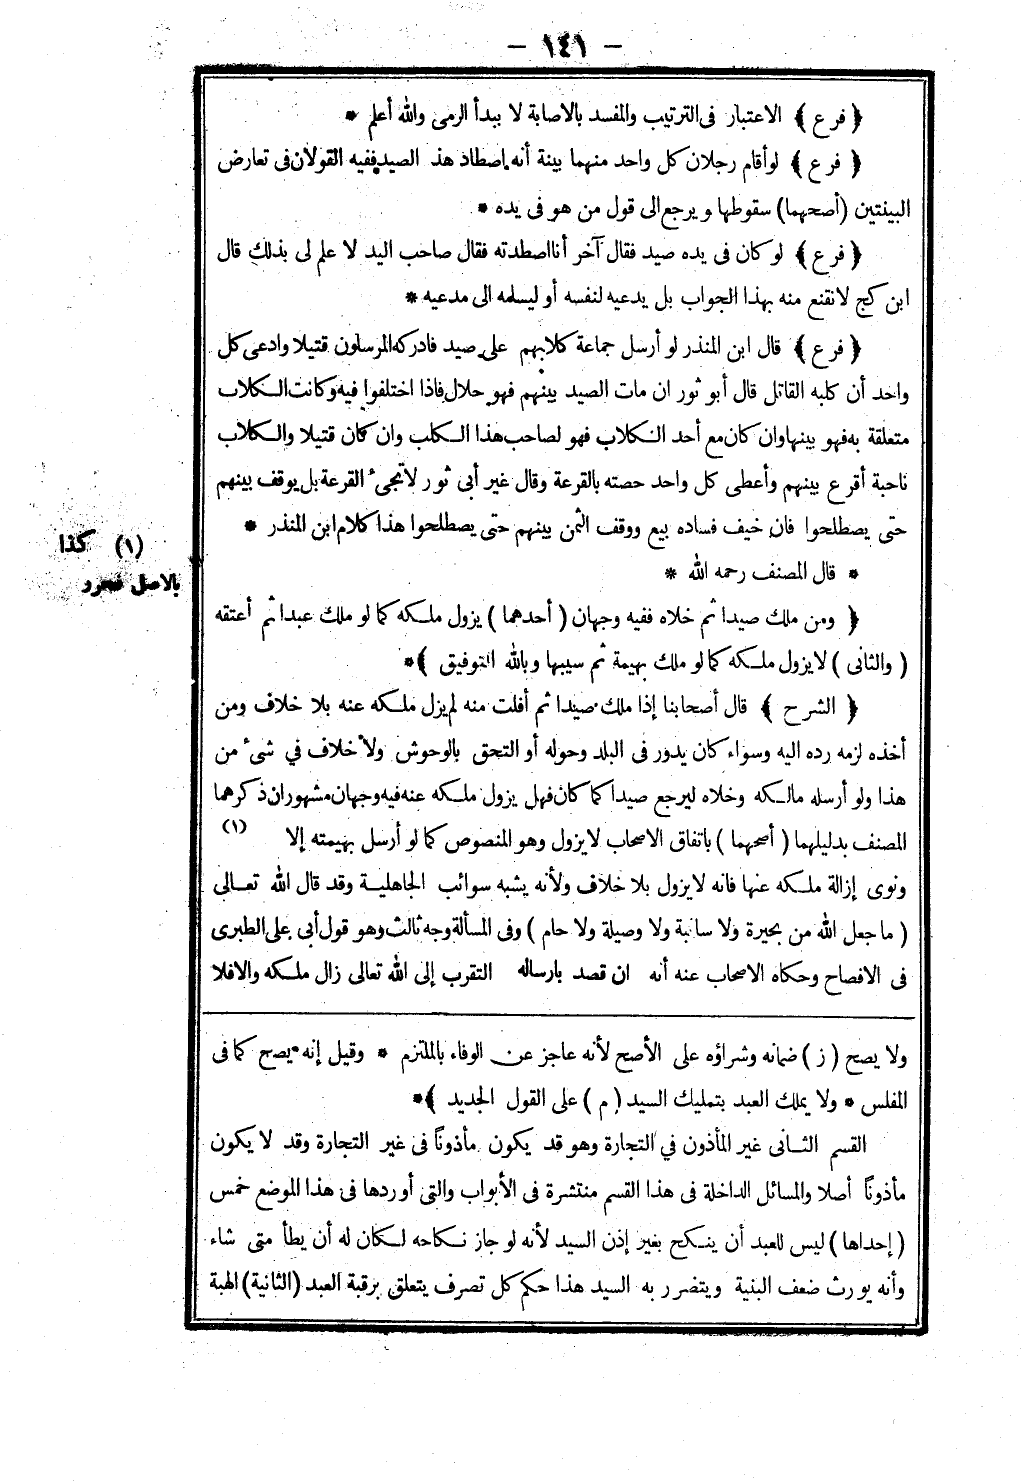 — ١٤١ —
﴿ فرع ﴾ الاعتبار فى الترتيب والمفسد بالاصابة لا ببدأ الرمى والله أعلم *
﴿ فرع ﴾ لو أقام رجلان كل واحد منهما بينة أنه اصطاد هذ الصيد ففيه القولان فى تعارض
البينتين (أصحهما) سقوطها ويرجع الى قول من هو فى يده *
﴿ فرع ﴾ لو كان فى يده صيد فقال آخر أنا اصطدته فقال صاحب اليد لا علم لى بذلك قال
ابن كج لا نقنع منه بهذا الجواب بل يدعيه لنفسه أو ليسلمه الى مدعيه *
﴿ فرع ﴾ قال ابن المنذر لو أرسل جماعة كلابهم على صيد فادركه المرسلون قتيلا وادعى كل
واحد أن كلبه القاتل قال أبو ثور ان مات الصيد بينهم فهو حلال فاذا اختلفوا فيه وكانت الكلاب
متعلقة به فهو بينها وان كان مع أحد الكلاب فهو لصاحب هذا الكلب وان كان قتيلا والكلاب
ناحية أقرع بينهم وأعطى كل واحد حصته بالقرعة وقال غير أبى ثور لا تجىء القرعة بل يوقف بينهم
حتى يصطلحوا فان خيف فساده بيع ووقف الثمن بينهم حتى يصطلحوا هذا كلام ابن المنذر *
* قال المصنف رحمه الله *
﴿ ومن ملك صيدا ثم خلاه ففيه وجهان ( أحدهما ) يزول ملكه كما لو ملك عبدا ثم أعتقه
( والثانى ) لا يزول ملكه كما لو ملك بهيمة ثم سيبها وبالله التوفيق ﴾ *
﴿ الشرح ﴾ قال أصحابنا إذا ملك صيدا ثم أفلت منه لم يزل ملكه عنه بلا خلاف ومن
أخذه لزمه رده اليه وسواء كان يدور فى البلد وحوله أو التحق بالوحوش ولا خلاف في شىء من
هذا ولو أرسله مالكه وخلاه ليرجع صيدا كما كان فهل يزول ملكه عنه فيه وجهان مشهوران ذكرهما
المصنف بدليلهما ( أصحهما ) باتفاق الاصحاب لا يزول وهو المنصوص كما لو أرسل بهيمته إلا (١)
ونوى إزالة ملكه عنها فانه لا يزول بلا خلاف ولأنه يشبه سوائب الجاهلية وقد قال الله تعالى
( ما جعل الله من بحيرة ولا سائبة ولا وصيلة ولا حام ) وفى المسألة وجه ثالث وهو قول أبى على الطبرى
فى الافصاح وحكاه الاصحاب عنه أنه ان قصد بارساله التقرب إلى الله تعالى زال ملكه والافلا
(١) كذا
بالاصل فحرر
ولا يصح ( ز ) ضمانه وشراؤه على الأصح لأنه عاجز عن الوفاء بالملتزم * وقيل إنه يصح كما فى
المفلس * ولا يملك العبد بتمليك السيد ( م ) على القول الجديد ﴾ *
القسم الثانى غير المأذون في التجارة وهو قد يكون مأذوناً فى غير التجارة وقد لا يكون
مأذوناً أصلا والمسائل الداخلة فى هذا القسم منتشرة فى الأبواب والتى أوردها فى هذا الموضع خمس
( إحداها ) ليس للعبد أن ينكح بغير إذن السيد لأنه لو جاز نكاحه لكان له أن يطأ متى شاء
وأنه يورث ضعف البنية ويتضرر به السيد هذا حكم كل تصرف يتعلق برقبة العبد (الثانية) الهبة